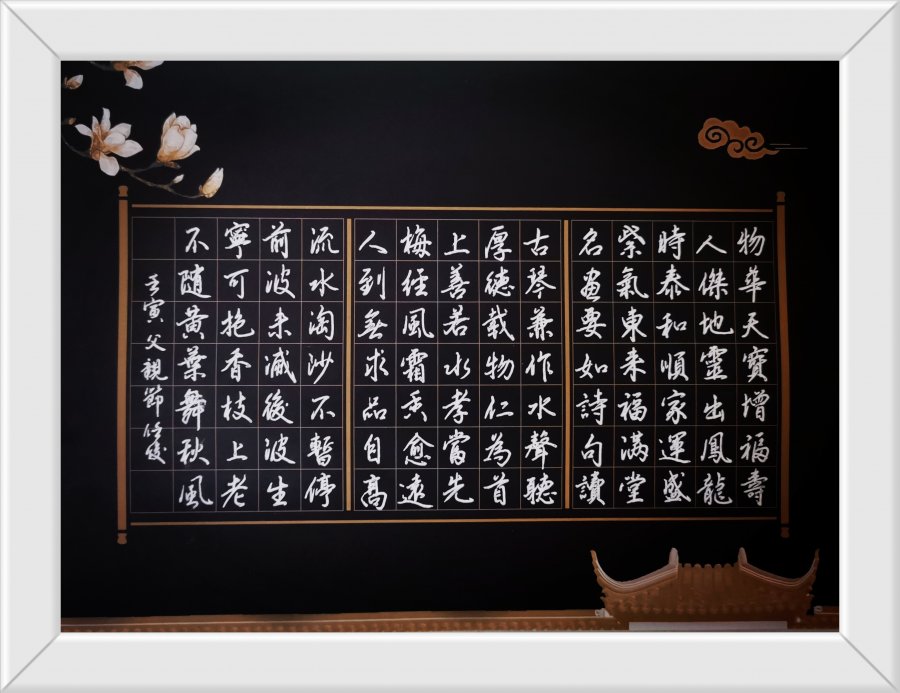 物華天寶增福壽
人傑地靈出鳳龍
時泰和順家運盛
紫氣東来福满堂
名畫要如詩句讀
古琴兼作水聲聽
厚德载物仁為首
上善若水孝當先
梅经風霜香愈遠
人到無求品自高
流水淘沙不暫停
前波未滅後波生
寧可抱香枝上老
不隨黄葉舞秋風
壬寅父親節